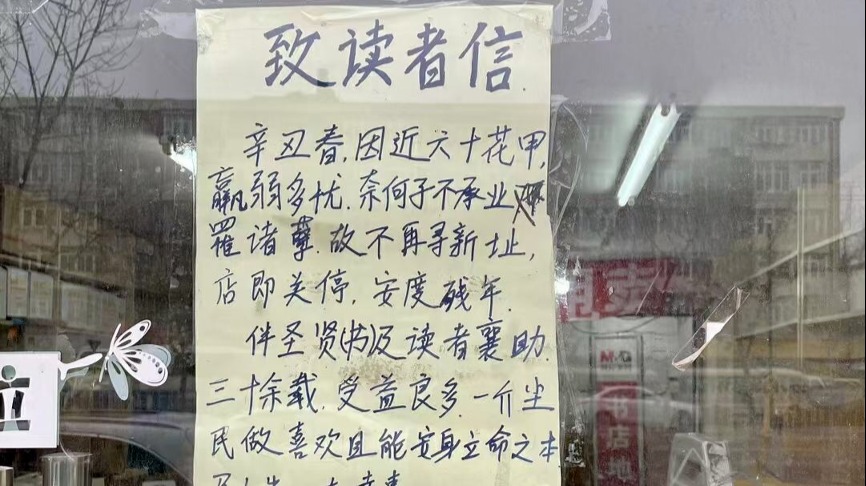 致读者信
辛丑春,因近六十花甲,
羸弱多忧,奈何子不承业
罹诸孽,故不再寻新址,
店即关停,安度残年.
伴圣贤(书)及读者襄助
三十余载,受益良多,一介尘
民做喜欢且能安身立命之本
书店地